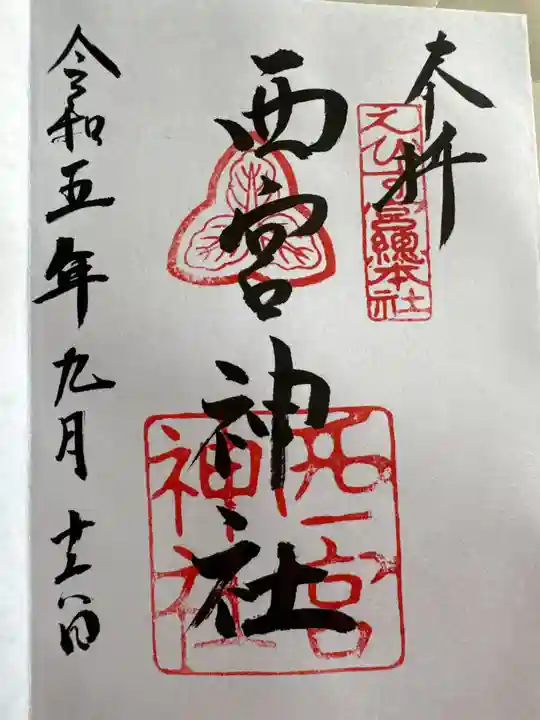 奉拝
えびす宮總本社
西宮神社
西宮神社
令和五年九月十六日